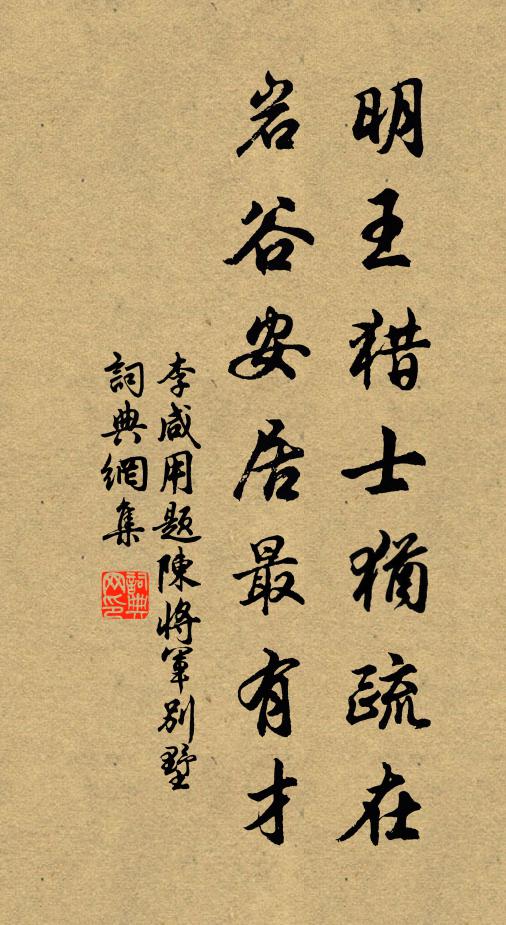 明王猎士犹疏在
岩谷安居最有才
李咸用题陳將軍别墅
詞典網集
詞典网印